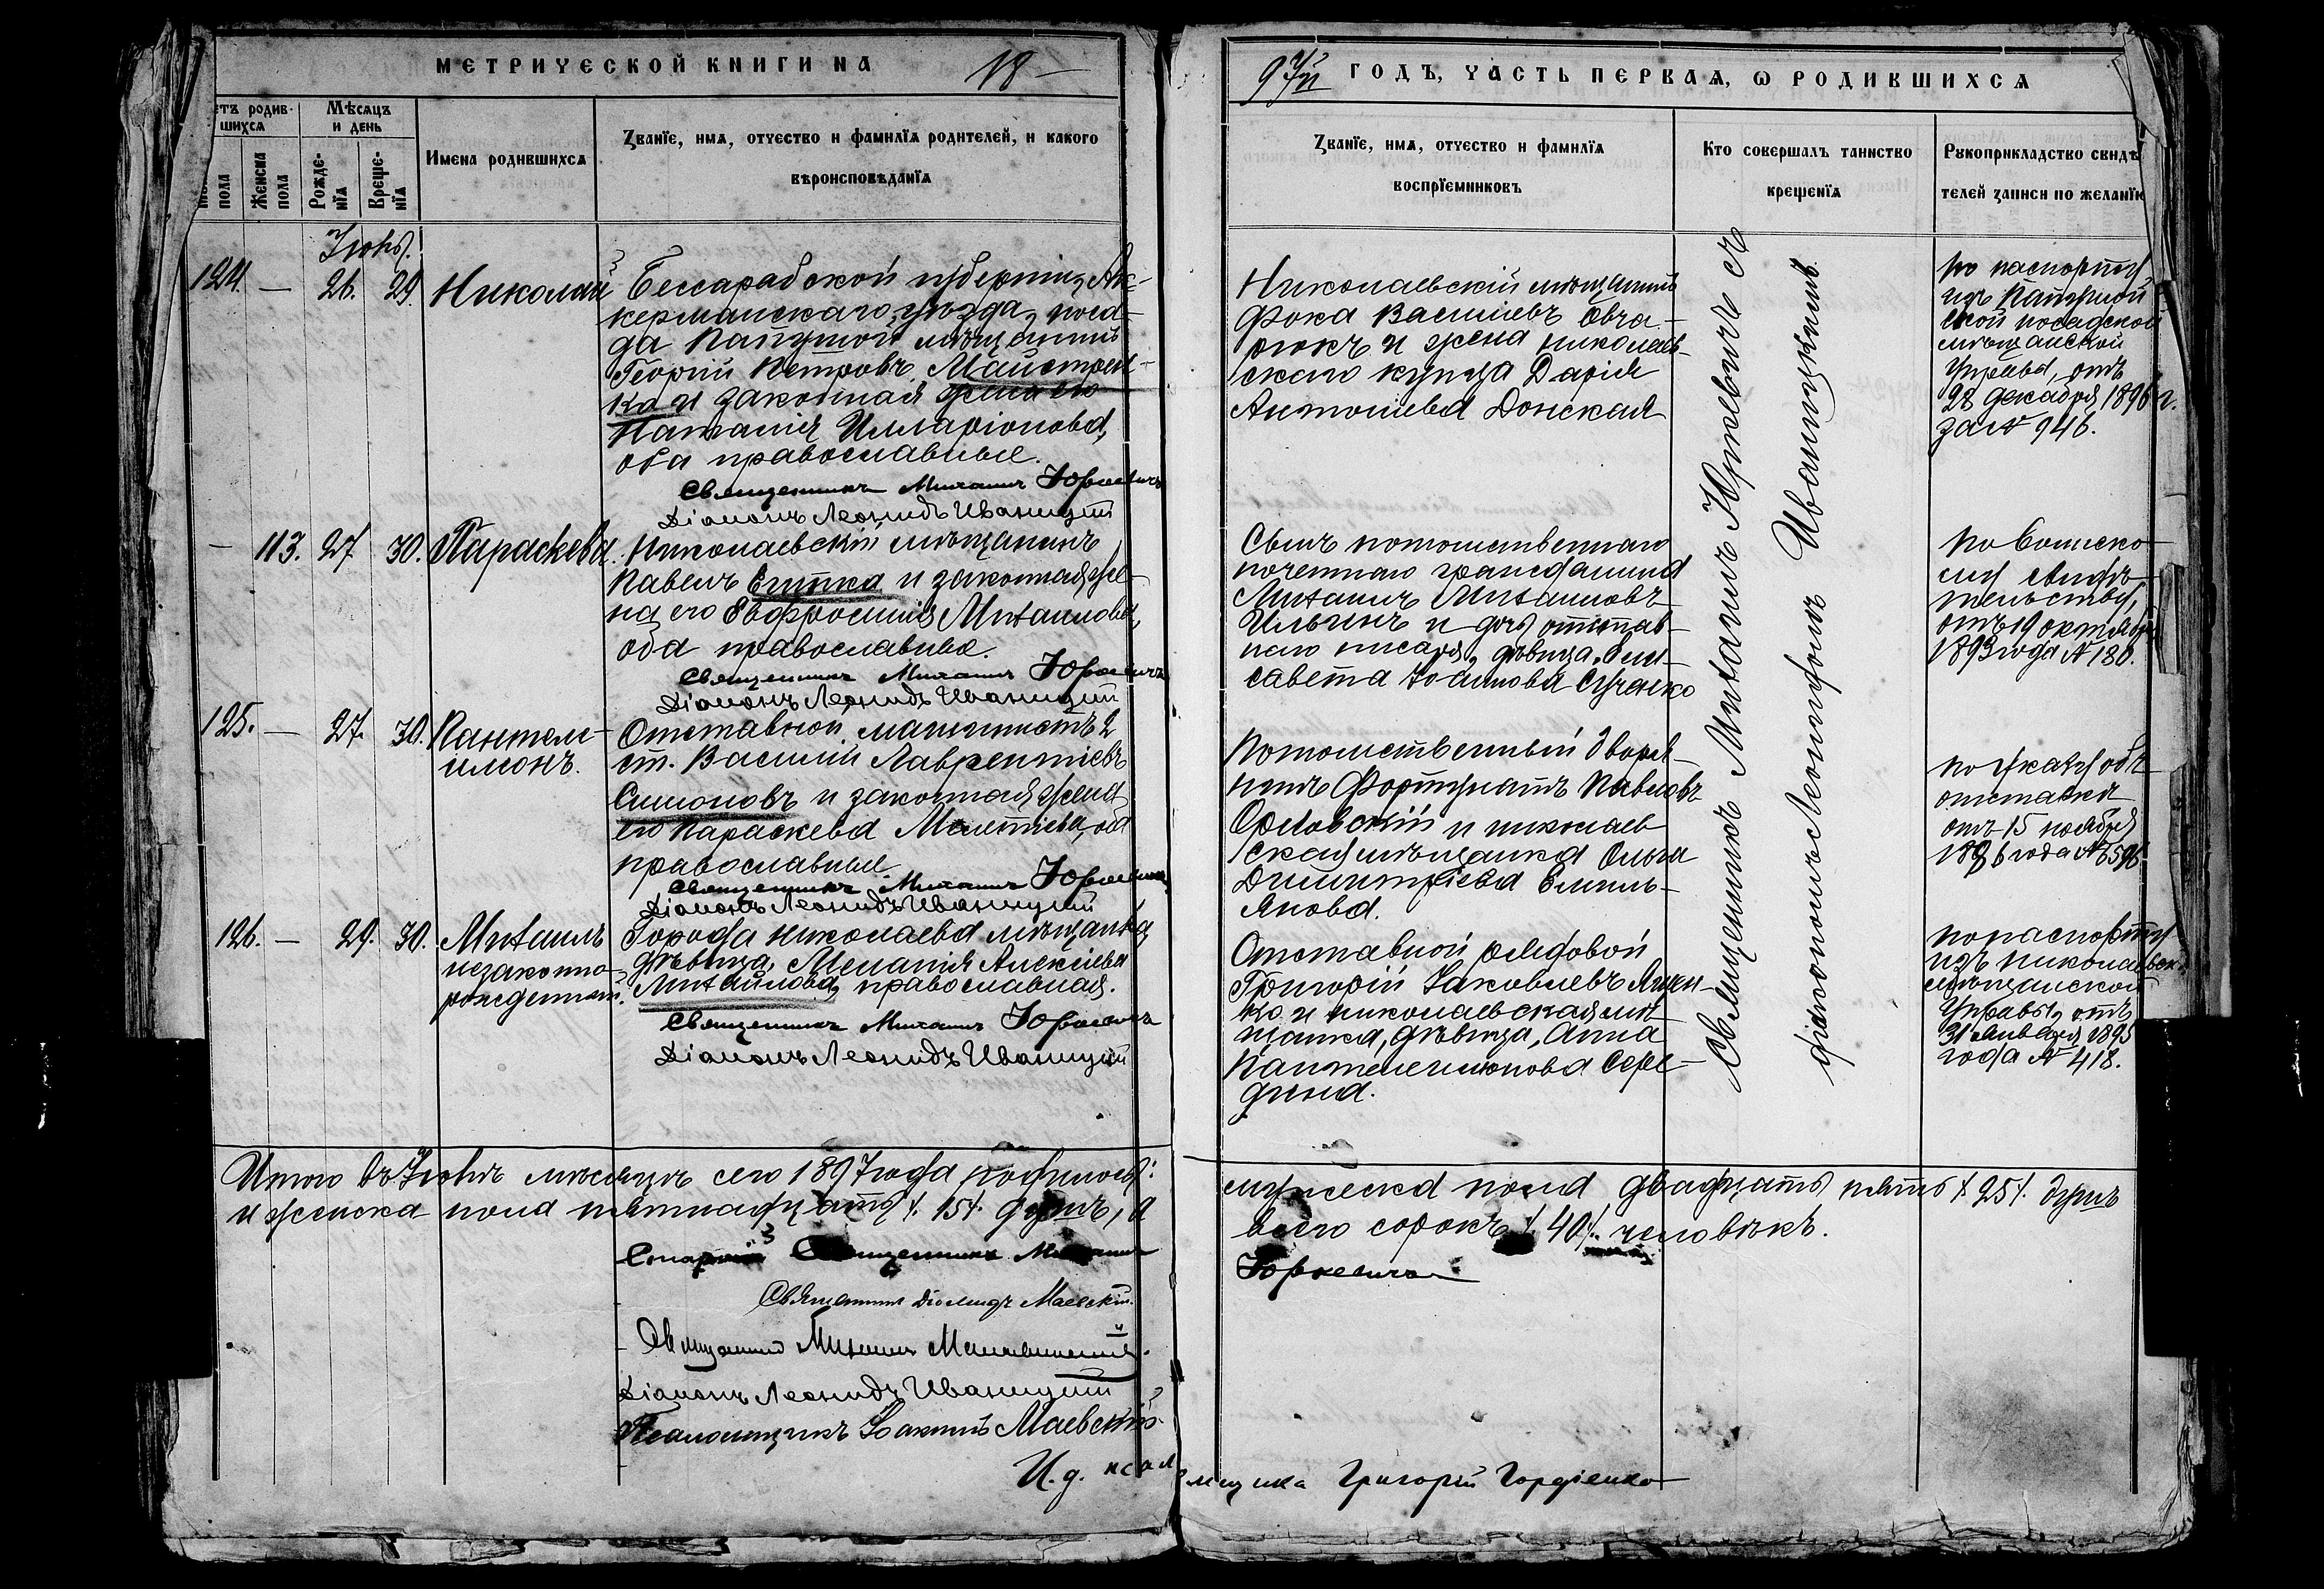 МЕТРИЧЕСКОЙ КНИГИ НА 18
97й ГОДЪ, ЧАСТЬ ПЕРВАЯ, Ѡ РОДИВШИХСЯ
етъ родив-
шихся
Мѣсяцъ
и день
пола
Женска
пола
Рожде-
нїя
Креще-
нїя
Имена родившихся
Званїе, имя, отчество и фамилїя родителей, и какого
вѣроисповѣданїя
Званїе, имя, отчество и фамилїя
воспрїемниковъ
Кто совершалъ таинство
крещенїя
Рукоприкладство свидѣ
телей записи по желанїю
Іюнь.
124. — 26. 29. Николай
Бессарабской губерніи, Ак-
керманскаго уѣзда, поса-
да Папушой мѣщанинъ
Георгій Петровъ Майстрен-
ко и законная жена его
Наталія Илларіонова,
оба православные.
Священникъ Михаилъ Юркевичъ
Діаконъ Леонидъ Иваницкій
Николаевскій мѣщанинъ
Фока Васильевъ Овча-
рюкъ и жена николаев-
скаго купца Дарія
Антоніева Донская
по паспорту
изъ Папушой
ской посадской
мѣщанской
Управы, отъ
28 декабря 1896 г.
за № 946.
— 113. 27 30. Параскева.
Николаевскій мѣщанинъ
Павелъ Гытка и законная же-
на его Евфросинія Михаилова,
оба православные.
Священникъ Михаилъ Юркевичъ
Діаконъ Леонидъ Иваницкій
Сынъ потомственнаго
почетнаго гражданина
Михаилъ Михаиловъ
Ильинъ и дочь отстав-
наго писаря, дѣвица, Ели-
савета Іоаннова Сученко
по воинско-
му свидѣ-
тельству,
отъ 19 октября
1893 года № 180.
125. — 27. 30. Пантеле-
имонъ.
Отставной машинистъ 2
ст. Василій Лаврентіевъ
Симоновъ и законная жена
его Параскева Мелетіева, оба
православные.
Священникъ Михаилъ Юркевичъ
Діаконъ Леонидъ Иваницкій
Потомственный дворя-
нинъ Фортунатъ Павловъ
Орловскій и николаев-
ская мѣщанка Ольга
Димитріева Емель-
янова.
по указу объ
отставкѣ
отъ 15 ноября
1896 года №
126. — 29. 30. Михаилъ
незаконно-
рожденный.
Города Николаева мѣщанка,
дѣвица, Меланія Алексіева
Михайлова, православная.
Священникъ Михаилъ Юркевичъ
Діаконъ Леонидъ Иваницкій
Отставной рядовой
Григорій Іаковлевъ
ко и николаевская мѣ-
щанка, дѣвица, Анна
Пантелеимонова Сере-
дина.
по паспорту
изъ николаевск.
мѣщанской
Управы, отъ
31 января 1895
года № 418.
Священникъ Михаилъ Юркевичъ съ
діакономъ Леонидомъ Иваницкимъ.
Итого въ Іюнѣ мѣсяцѣ сего 1897 года родилось: мужеска пола двадцать пять /. 25 /. душъ
и женска пола пятнадцать /. 15 /. душъ, а всего сорокъ /. 40 /. человѣкъ.
Старшій Священникъ Михаилъ Юркевичъ
Священникъ Діомидъ Маевскій.
Священникъ Михаилъ
Діаконъ Леонидъ Иваницкій
Псаломщикъ Іоаннъ Маевскій
И. д. псаломщика Григорій Гордіенко